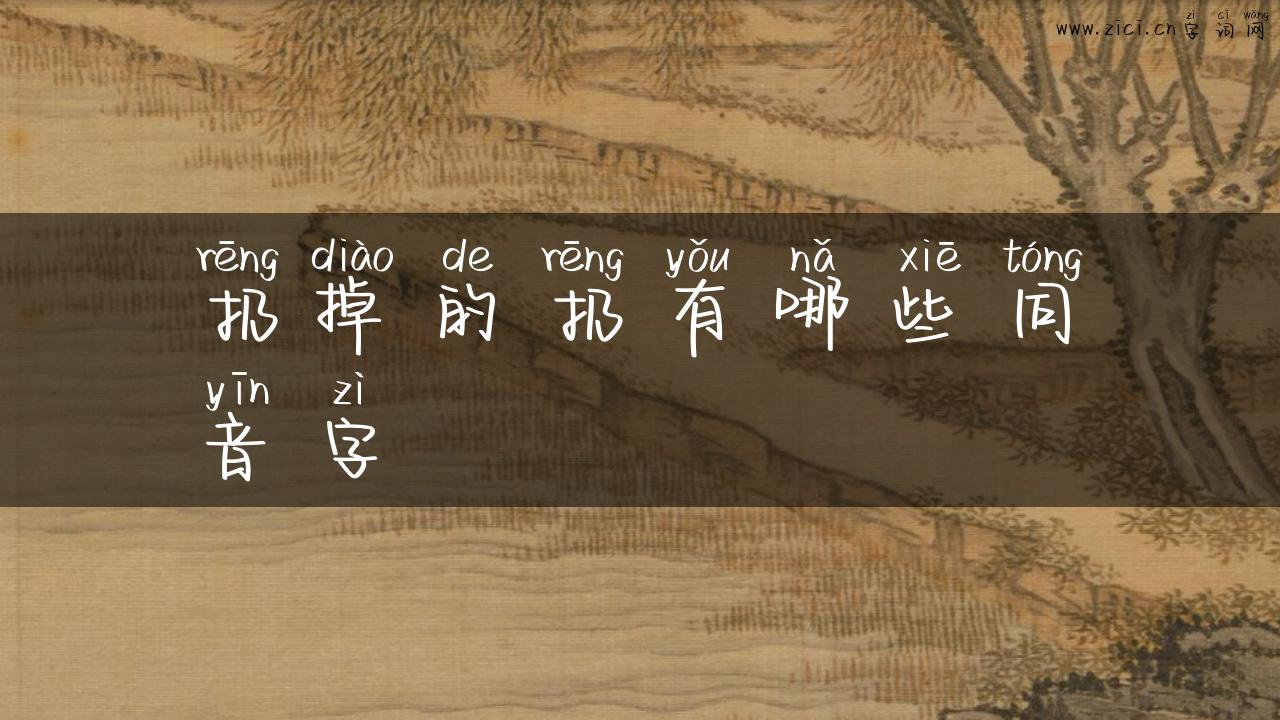 zì cí wǎng
www.zici.cn 字 词 网
rēng diào de rēng yǒu nǎ xiē tóng
扔 掉 的 扔 有 哪 些 同
yīn zì
音 字